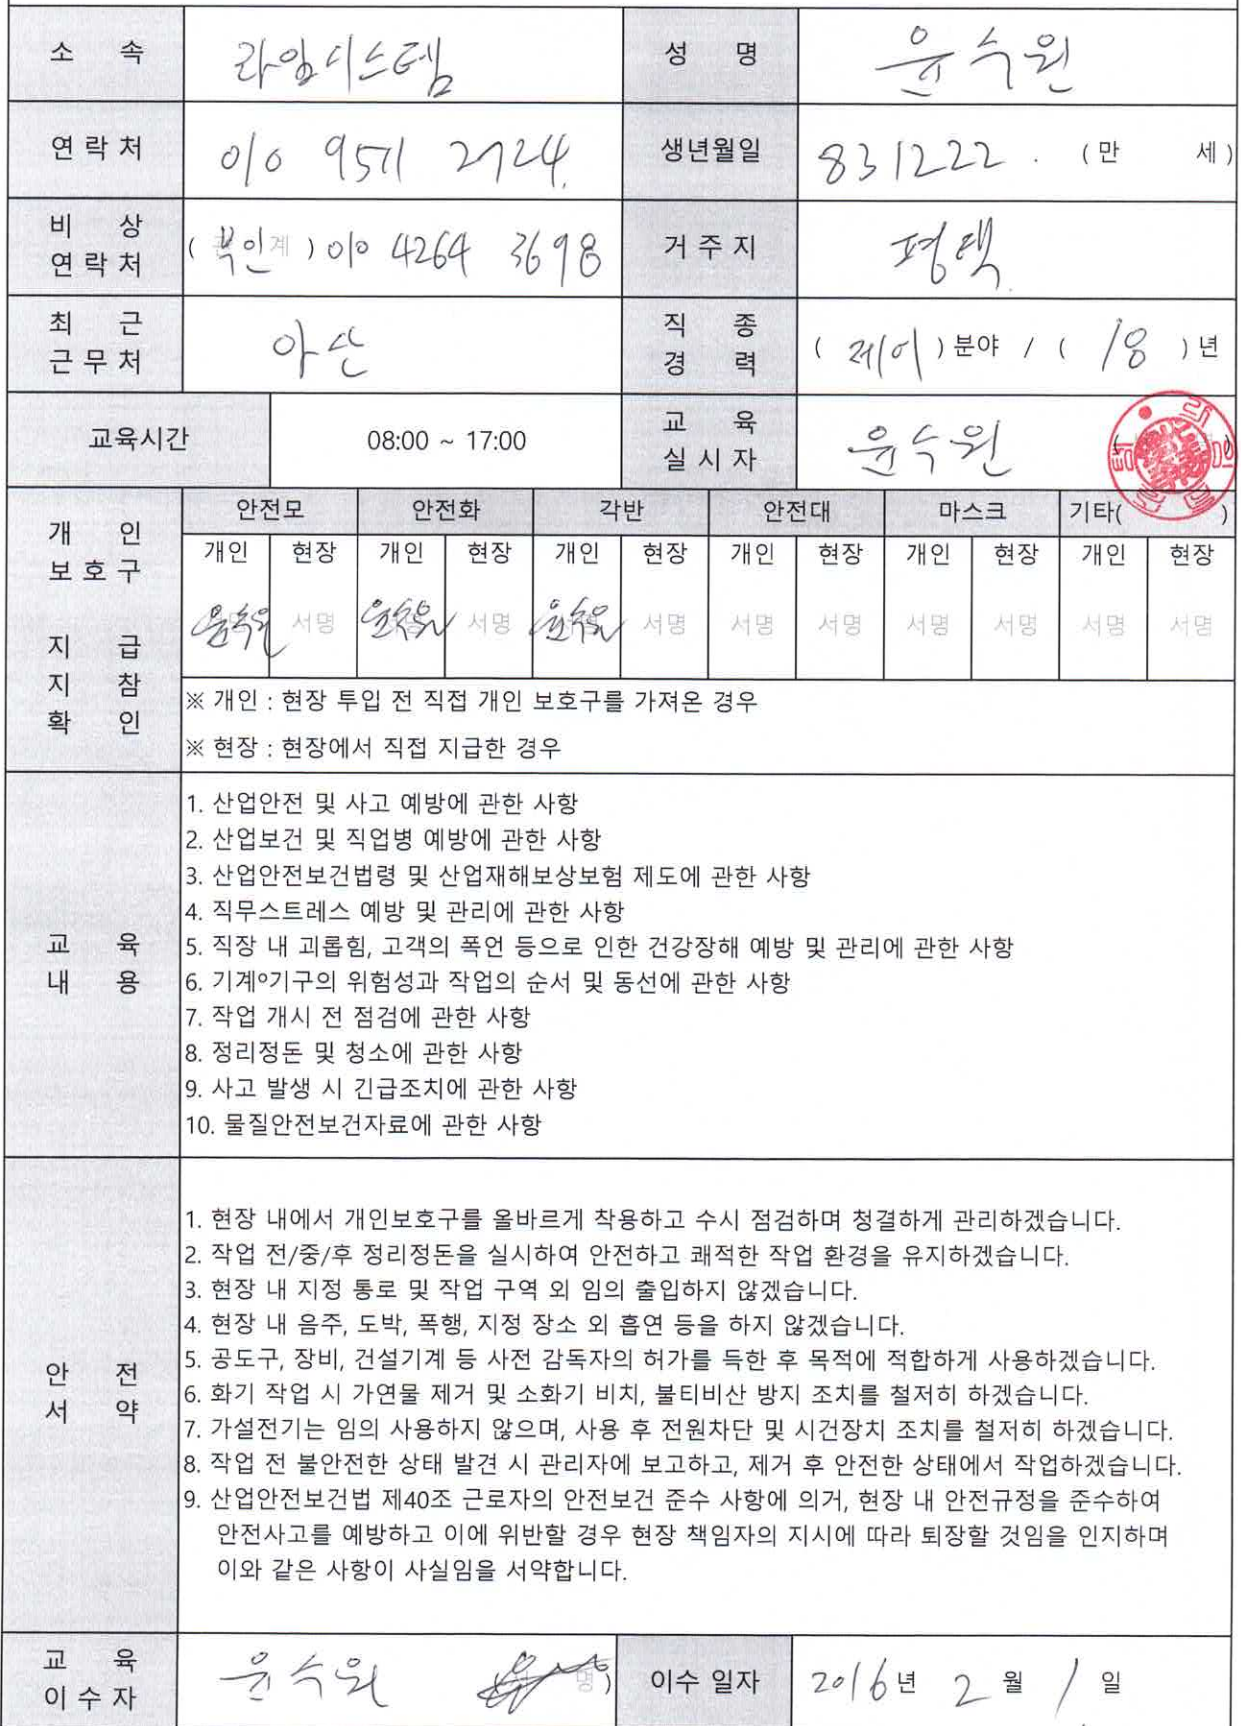 소 속 라임시스템 성 명 윤수원
연락처 010 9571 2724. 생년월일 831222 . (만 세)
비 상 연락처 (부인계) 010 4264 3698 거주지 평택
최 근 근무처 아산 직 종 경 력 (제어)분야 / (18)년
교육시간 08:00 ~ 17:00 교 육 실시자 윤수원
개 인 보호구 지 급 지 참 확 인
안전모 안전화 각반 안전대 마스크 기타( )
개인 현장 개인 현장 개인 현장 개인 현장 개인 현장 개인 현장
윤수원 서명 윤수원 서명 윤수원 서명 서명 서명 서명 서명 서명 서명
※ 개인 : 현장 투입 전 직접 개인 보호구를 가져온 경우
※ 현장 : 현장에서 직접 지급한 경우
교 육 내 용
1. 산업안전 및 사고 예방에 관한 사항
2. 산업보건 및 직업병 예방에 관한 사항
3. 산업안전보건법령 및 산업재해보상보험 제도에 관한 사항
4. 직무스트레스 예방 및 관리에 관한 사항
5. 직장 내 괴롭힘, 고객의 폭언 등으로 인한 건강장해 예방 및 관리에 관한 사항
6. 기계º기구의 위험성과 작업의 순서 및 동선에 관한 사항
7. 작업 개시 전 점검에 관한 사항
8. 정리정돈 및 청소에 관한 사항
9. 사고 발생 시 긴급조치에 관한 사항
10. 물질안전보건자료에 관한 사항
안 전 서 약
1. 현장 내에서 개인보호구를 올바르게 착용하고 수시 점검하며 청결하게 관리하겠습니다.
2. 작업 전/중/후 정리정돈을 실시하여 안전하고 쾌적한 작업 환경을 유지하겠습니다.
3. 현장 내 지정 통로 및 작업 구역 외 임의 출입하지 않겠습니다.
4. 현장 내 음주, 도박, 폭행, 지정 장소 외 흡연 등을 하지 않겠습니다.
5. 공도구, 장비, 건설기계 등 사전 감독자의 허가를 득한 후 목적에 적합하게 사용하겠습니다.
6. 화기 작업 시 가연물 제거 및 소화기 비치, 불티비산 방지 조치를 철저히 하겠습니다.
7. 가설전기는 임의 사용하지 않으며, 사용 후 전원차단 및 시건장치 조치를 철저히 하겠습니다.
8. 작업 전 불안전한 상태 발견 시 관리자에 보고하고, 제거 후 안전한 상태에서 작업하겠습니다.
9. 산업안전보건법 제40조 근로자의 안전보건 준수 사항에 의거, 현장 내 안전규정을 준수하여
안전사고를 예방하고 이에 위반할 경우 현장 책임자의 지시에 따라 퇴장할 것임을 인지하며
이와 같은 사항이 사실임을 서약합니다.
교 육 이수자 윤수원 명) 이수 일자 2016년 2월 1일